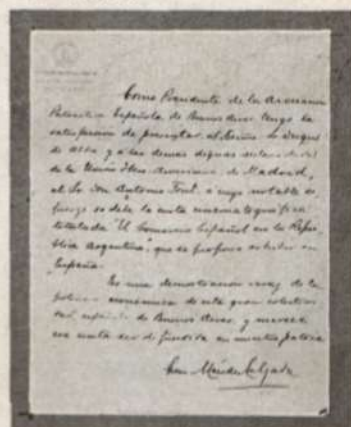 Como Presidente de la Asociación
Patriótica Española de Buenos Aires tengo la
satisfacción de presentar al Excmo. Sr. Duque
de Alba y a las demás dignas
de la Unión Ibero Americana de Madrid,
al Sr. Don Antonio a cuyo notable es-
fuerzo se debe la cinta cinematográfica
titulada "El Comercio Español en la Repú-
blica Argentina", que se propone exhibir en
España.
Es una demostración de la
económica de esta gran colectivi-
dad española de Buenos Aires y merece
esa cinta ser difundida en nuestra patria